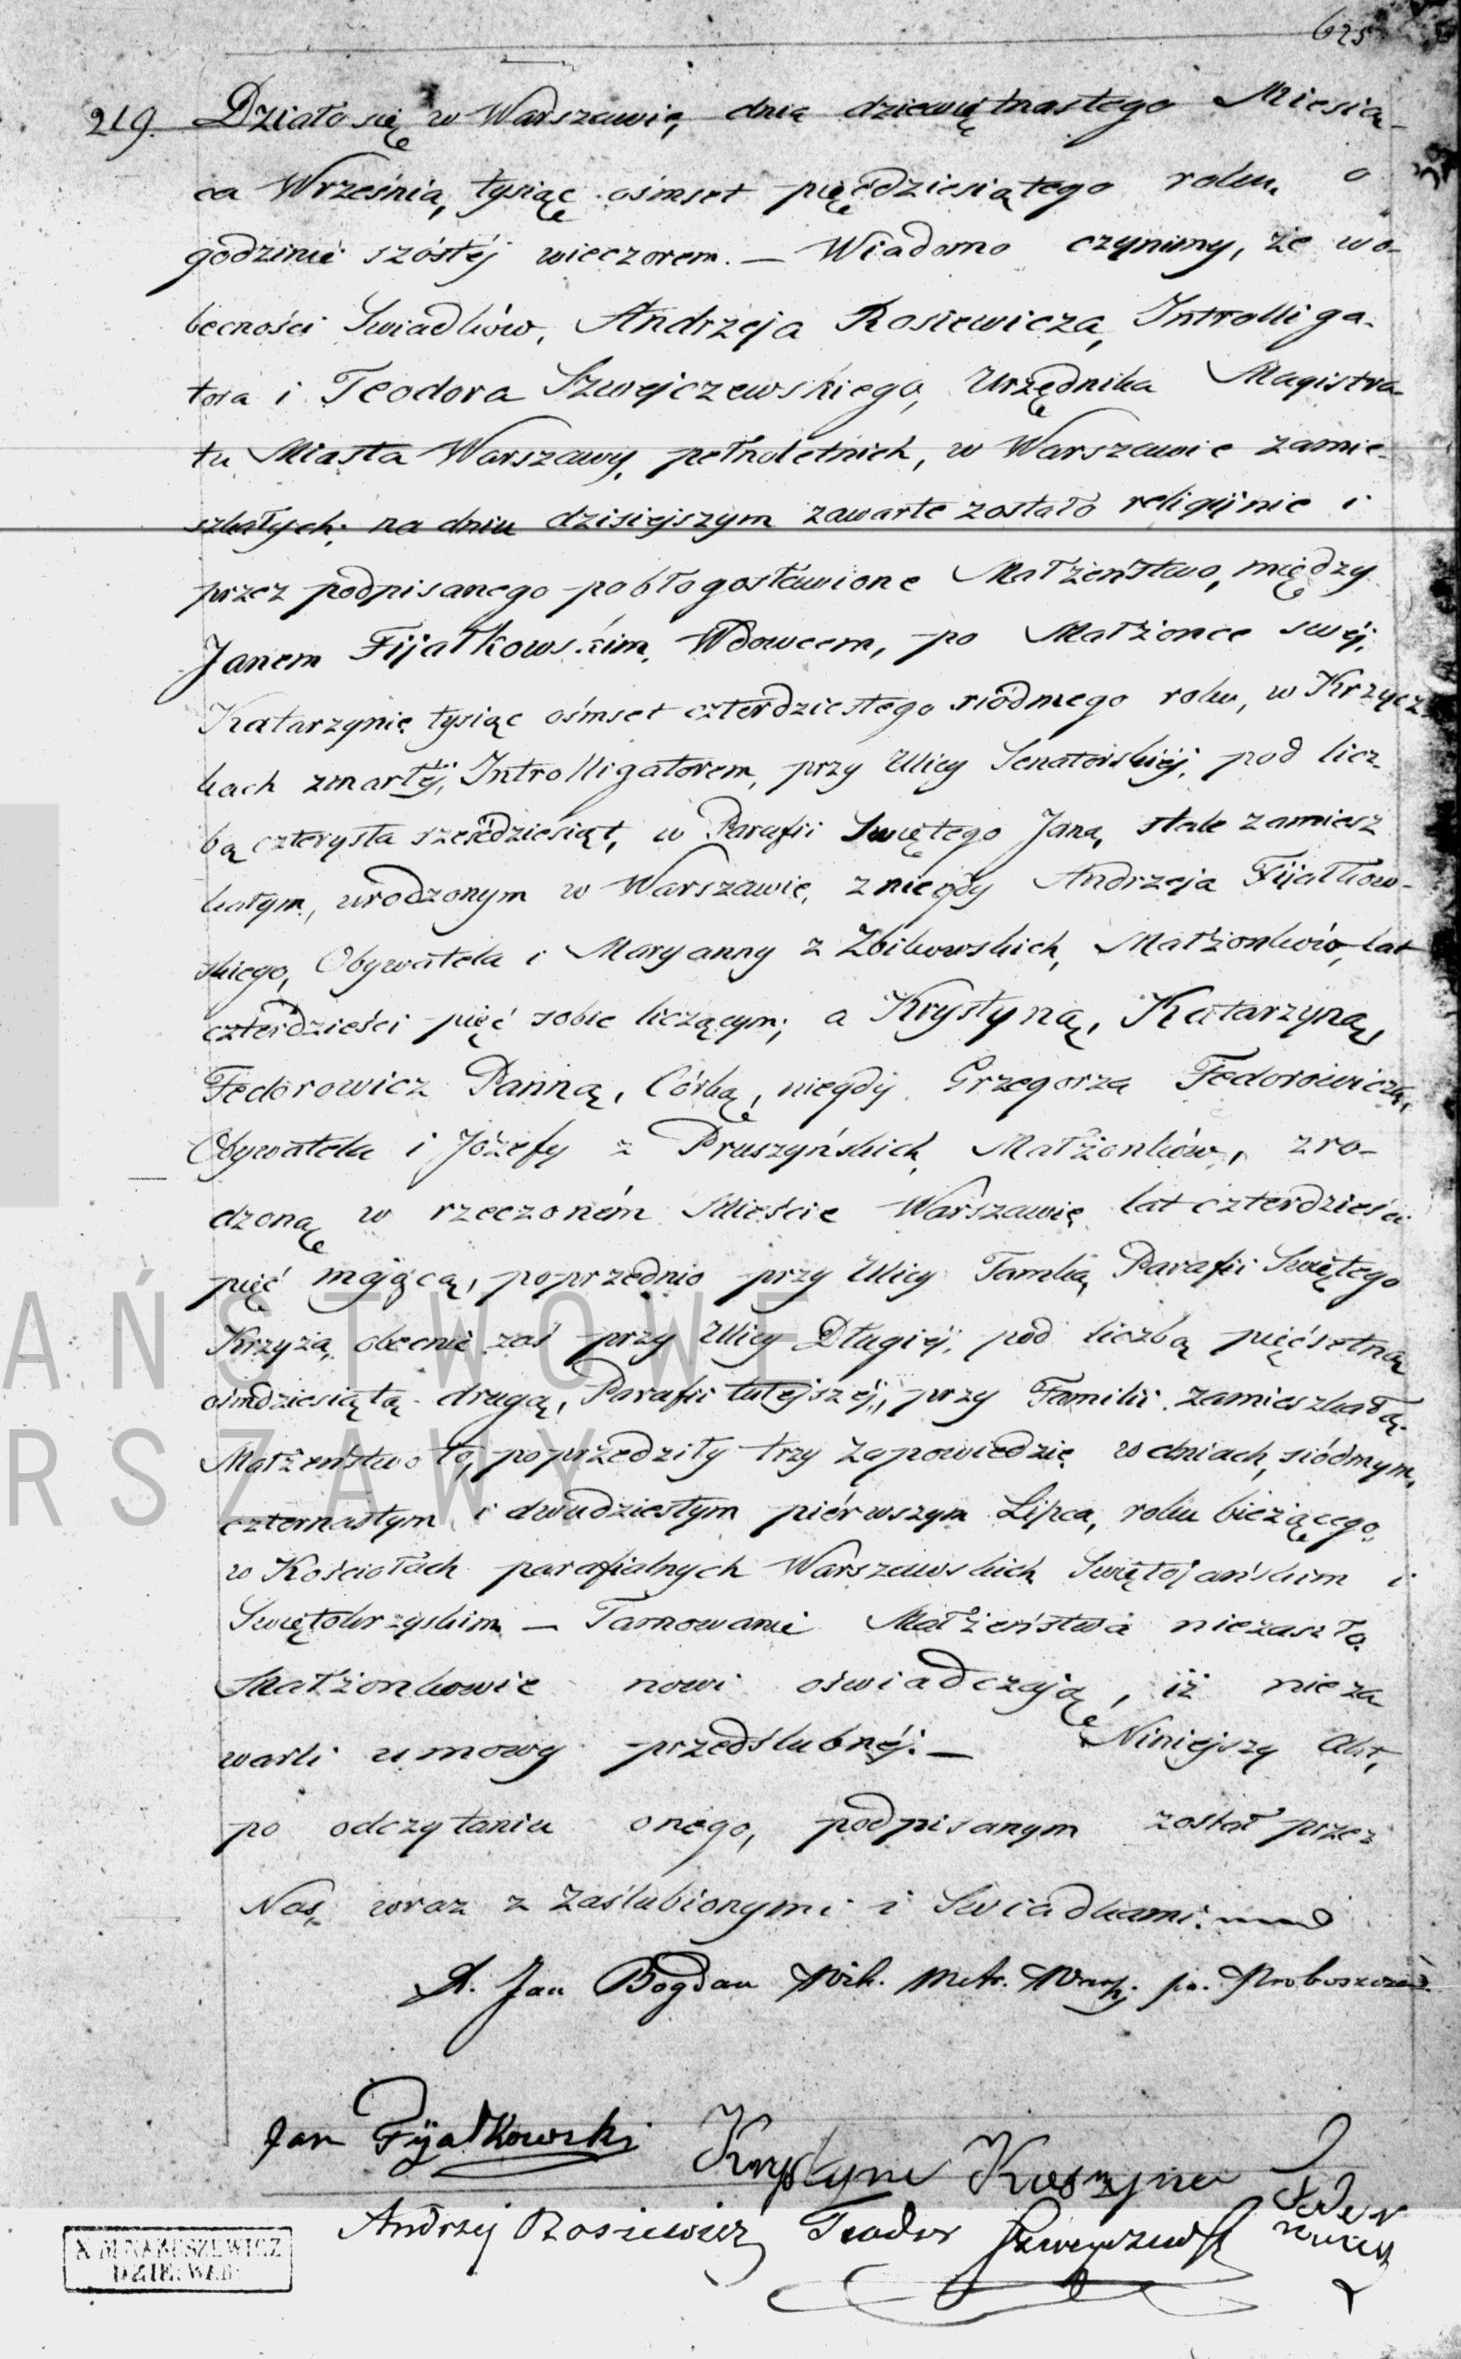 625
219. Działo się w Warszawie, dnia dziewiętnastego Miesią-
ca Września, tysiąc ośmset pięćdziesiątego roku, o
godzinie szóstéj wieczorem. — Wiadomo czynimy, że wo-
becności Swiadków, Andrzeja Rosiewicza, Introlliga-
tora i Teodora Szwejczewskiego, Urzędnika Magistra-
tu Miasta Warszawy, pełnoletnich, w Warszawie zamie-
szkałych; na dniu dzisiejszym zawarte zostało religijnie i
przez podpisanego pobłogosławione Małżeństwo, między
Janem Fijałkowskim, Wdowcem, po Małżonce swéj,
Katarzynie, tysiąc ośmset czterdziestego siódmego roku, w Krzycz-
kach zmarłéj, Introlligatorem, przy Ulicy Senatorskiéj, pod licz-
bą czterysta sześćdziesiąt, w Parafii Swiętego Jana, stale zamiesz
kałym, urodzonym w Warszawie, z niegdy Andrzeja Fijałkow-
skiego, Obywatela i Maryanny z Zbikowskich, Małżonków, lat
czterdzieści pięć sobie liczącym; a Krystyną, Katarzyną,
Fedorowicz Panną, Córką, niegdy Grzegorza Fedorowicza,
Obywatela i Józefy z Pruszyńskich, Małżonków, zro-
dzoną w rzeczoném Mieście Warszawie, lat czterdzieści
pięć mającą, poprzednio przy Ulicy Tamka, Parafii Swiętego
Krzyża, obecnie zaś przy Ulicy Długiéj, pod liczbą pięćsetną
ośmdziesiątą drugą, Parafii tutejszéj, przy Familii zamieszkałą.
Małżeństwo to, poprzedziły trzy Zapowiedzie, w dniach, siódmym,
czternastym i dwudziestym piérwszym Lipca, roku bieżącego,
w Kościołach parafialnych Warszawskich Swiętojańskim i
Swiętokrzyskim — Tamowanie Małżeństwa niezaszło.
Małżonkowie nowi oświadczają, iż nieza
warli umowy przedślubnéj. — Niniejszy Akt,
po odczytaniu onego, podpisanym został przez
Nas, wraz z Zaślubionymi i Swiadkami.
X. Jan Bogdan Wik. Metr. Warsz. za Proboszcza
Jan Fijałkowski Krystyna
Andrzej Rosiewicz Teodor Szwejczewski
X M NARUSZEWICZ
DZIE. WAR.
AŃSTWOWE
RSZAWY